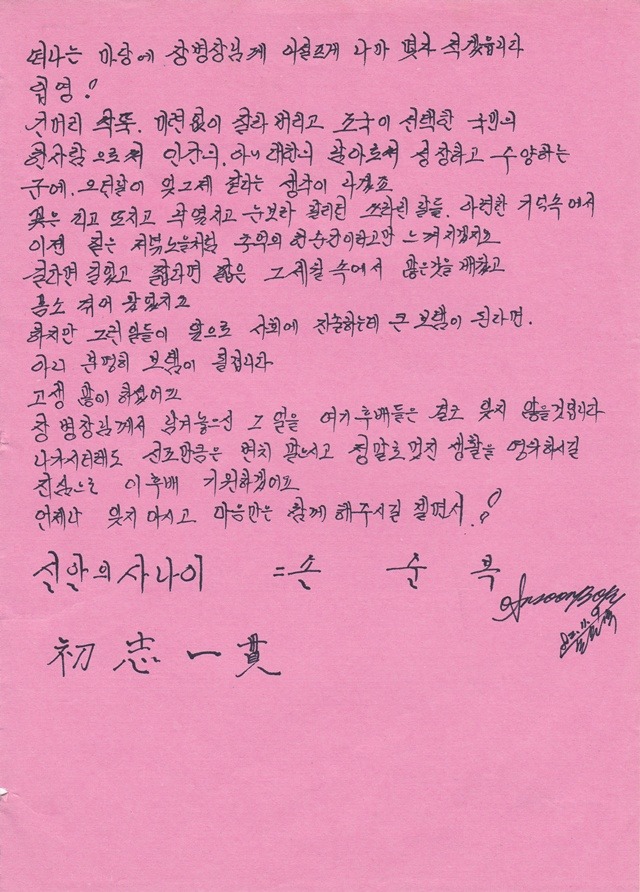 떠나는 마당에 장병장님께 어설프게 나마 몇자 적겠읍니다
립영!
싹뚝. 미련없이 잘라 버리고 조국이 선택한 국민의
한사람으로써 인간의. 아니 대한의 남아로써 성장하고 수양하는
군에. 오던날이 엊그제 같다는 생각이 나겠죠
꽃은 피고 또지고 눈보라 쓰라린 날들. 아련한 기억속에서
이젠 짙은 저녁노을처럼 추억의 한순간이라고만 느껴지겠지요
길다면 길었고 짧다면 짧은 그세월 속에서 많은것을 깨닫고
몸소 겪어 왔겠지요
하지만 그런일들이 앞으로 사회에 진출하는데 큰 보탬이 된다면.
아니 분명히 보탬이 될겁니다
고생 많이 하셨어요
장병장님께서 남겨놓으신 그 일을 여기 후배들은 결코 잊지 않을것입니다
나가시더래도 신조만큼은 변치 말으시고 정말로 멋진 생활을 영위하시길
진심으로 이후배 기원하겠어요
언제나 잊지 마시고 마음만은 함께 해주시길 빌면서.!
신안의 사나이 = 손 순 복
初 志 一 貫